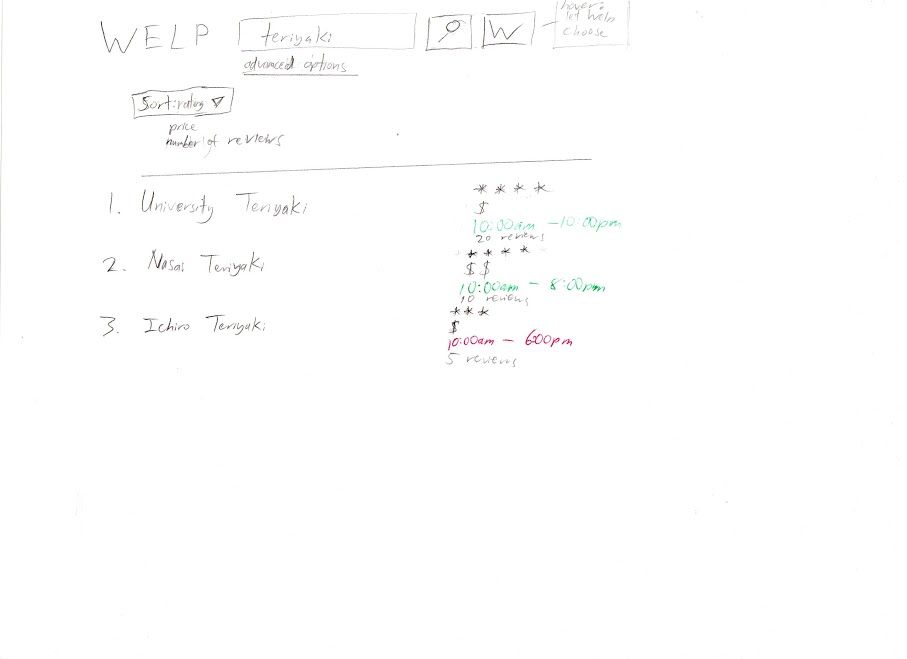 WELP teriyaki W hover: let Welp choose
advanced options
Sort: rating ▽
price
number of reviews
1. University Teriyaki
****
$
10:00am - 10:00pm
20 reviews
2. Nasai Teriyaki
****
$$
10:00am - 8:00pm
10 reviews
3. Ichiro Teriyaki
***
$
10:00am - 6:00pm
5 reviews